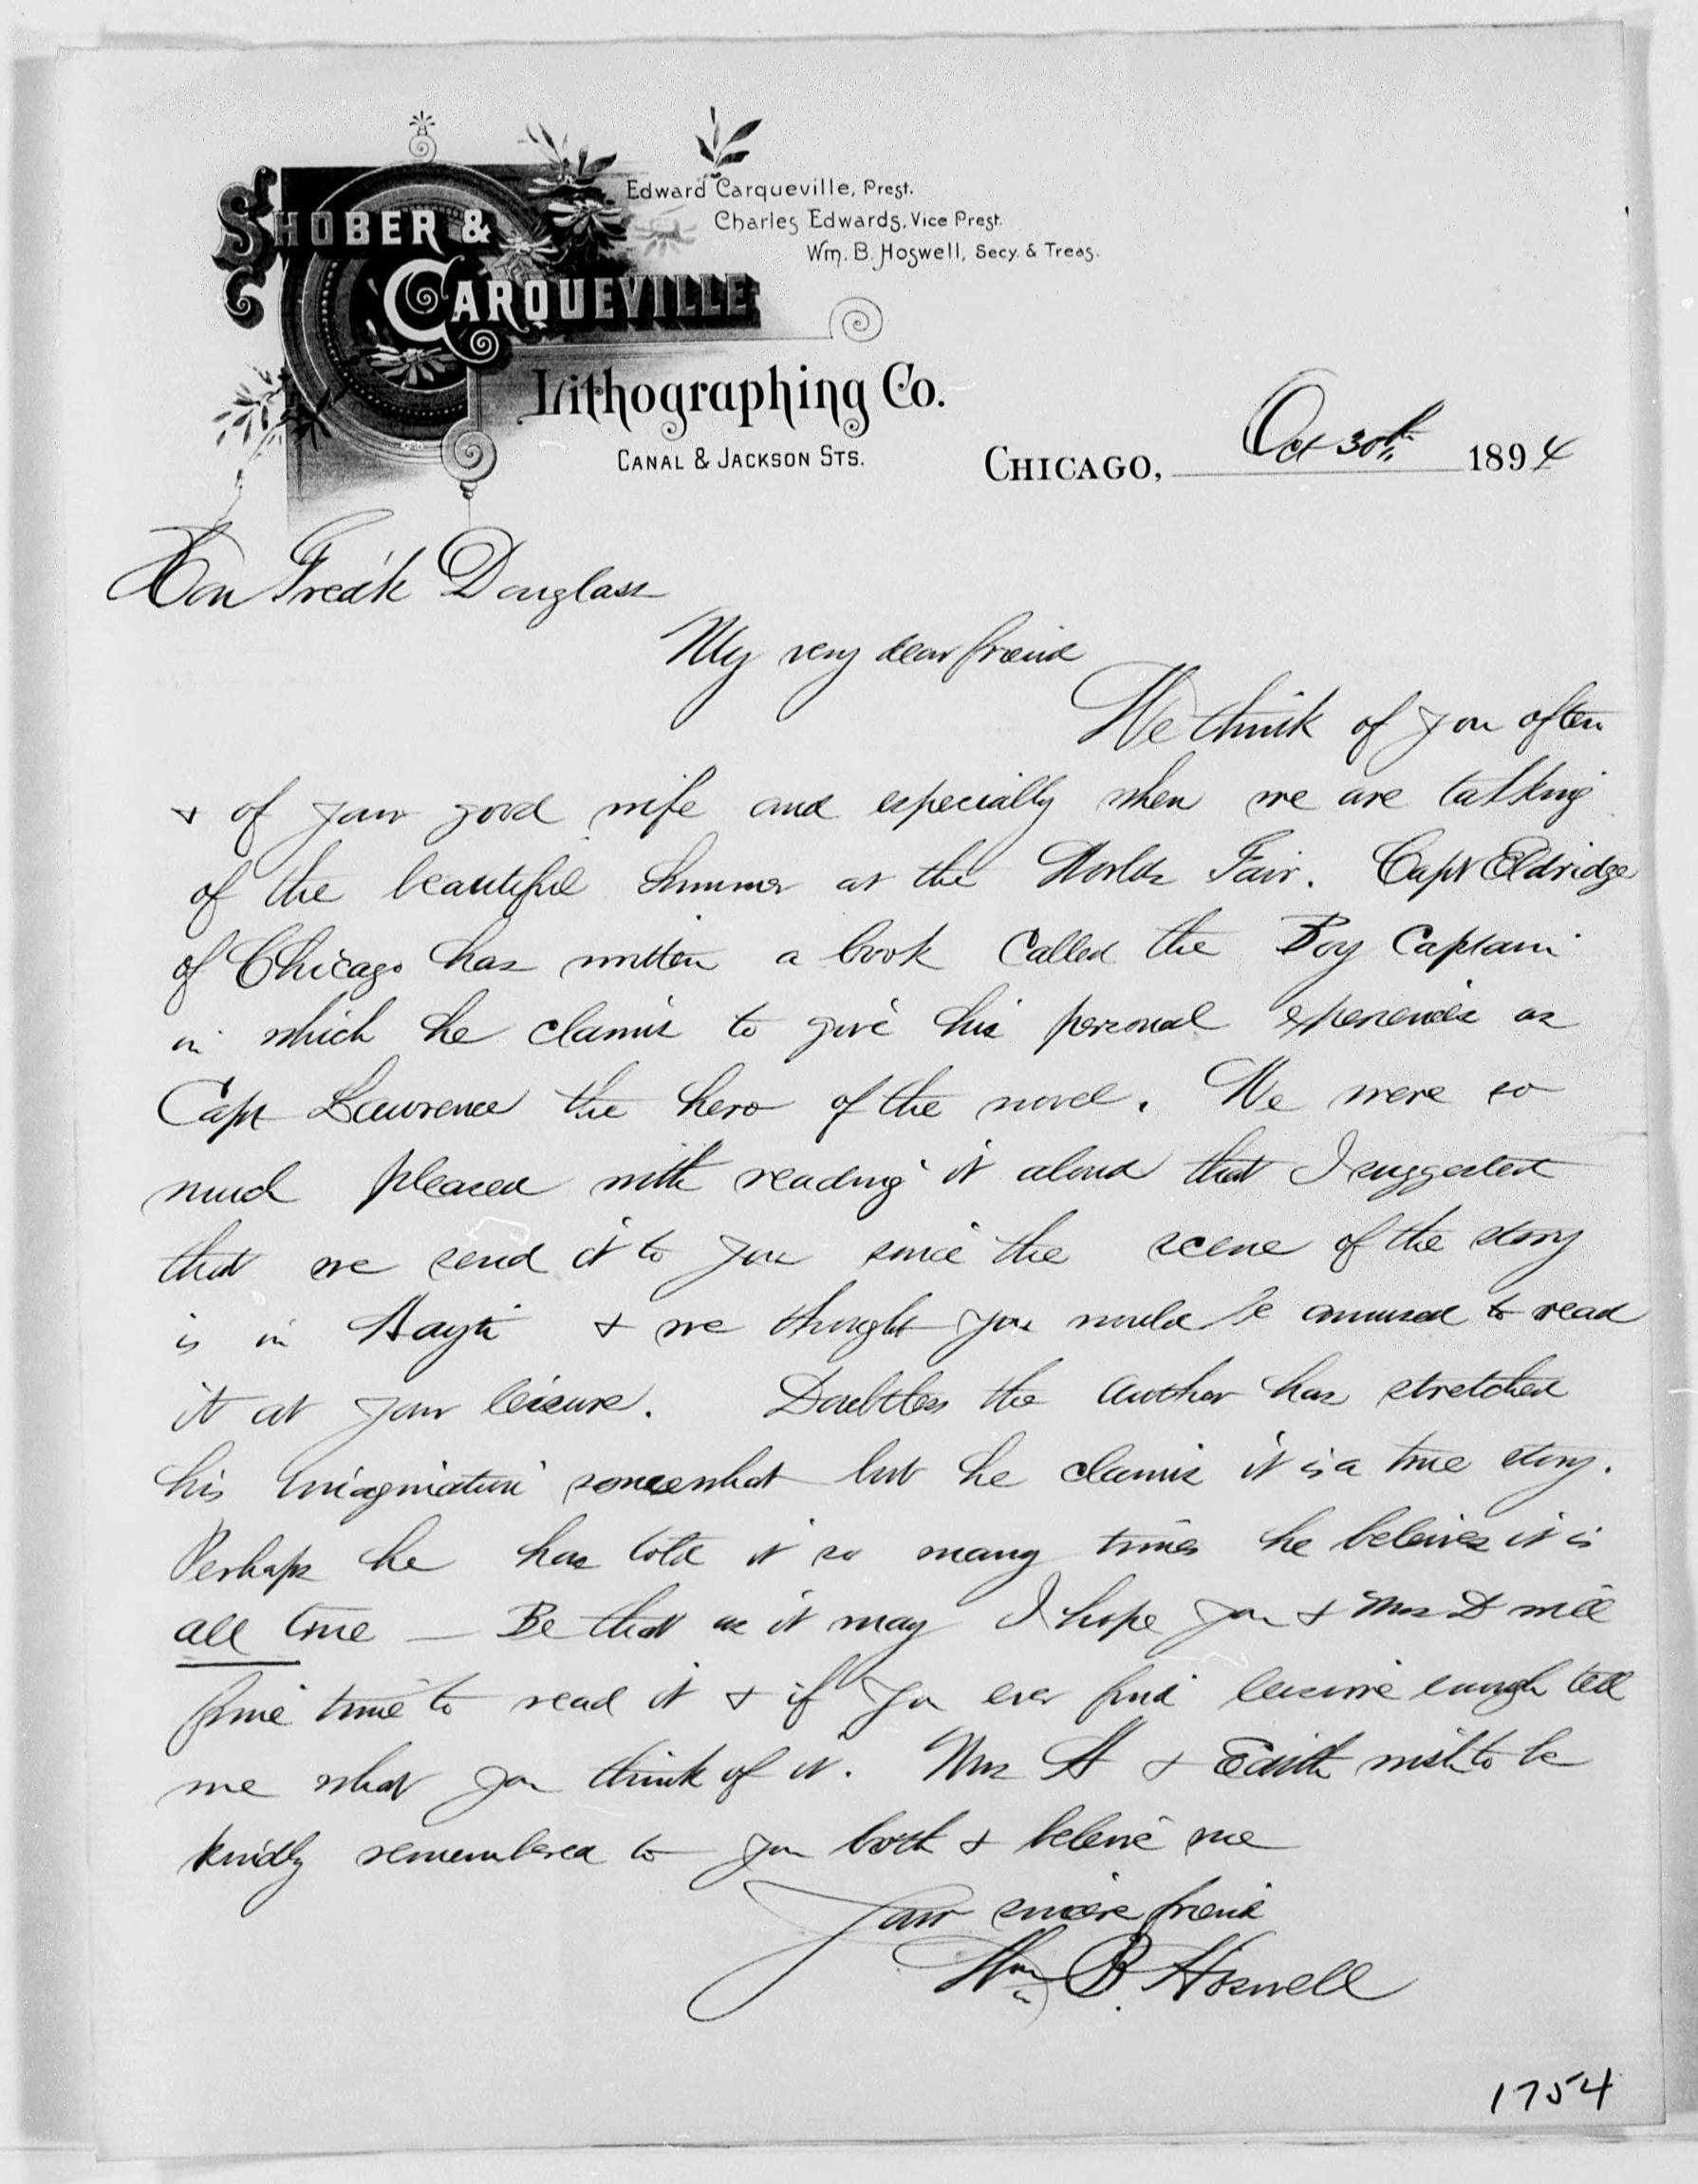 SHOBER &
CARQUEVILLE
Lithographing Co.
CANAL & JACKSON STS.
Edward Carqueville, Prest.
Charles Edwards, Vice Prest.
Wm. B. Hoswell, Secy. & Treas.
CHICAGO, Oct 30th 1894
Hon Fredk Douglass
My very dear friend
We think of you often
& of your good wife and especially when we are talking
of the beautiful Summer at the Worlds Fair. Capt Eldridge
of Chicago has written a book called the Boy Captain
in which he claims to give his personal experiences as
Capt Lawrence the hero of the novel. We were so
much pleased with reading it aloud that I suggested
that we send it to you since the scene of the story
is in Hayti & we thought you would be amused to read
it at your leisure. Doubtless the author has stretched
his imagination somewhat but he claims it is a true story.
Perhaps he has told it so many times he beleives it is
all true — Be that as it may I hope you & Mrs D will
find time to read it & if you ever find leisure enough tell
me what you think of it. Mrs H & Edith wish to be
kindly remembered to you both & beleive me
Your sincere friend
Wm B. Hoswell
1754